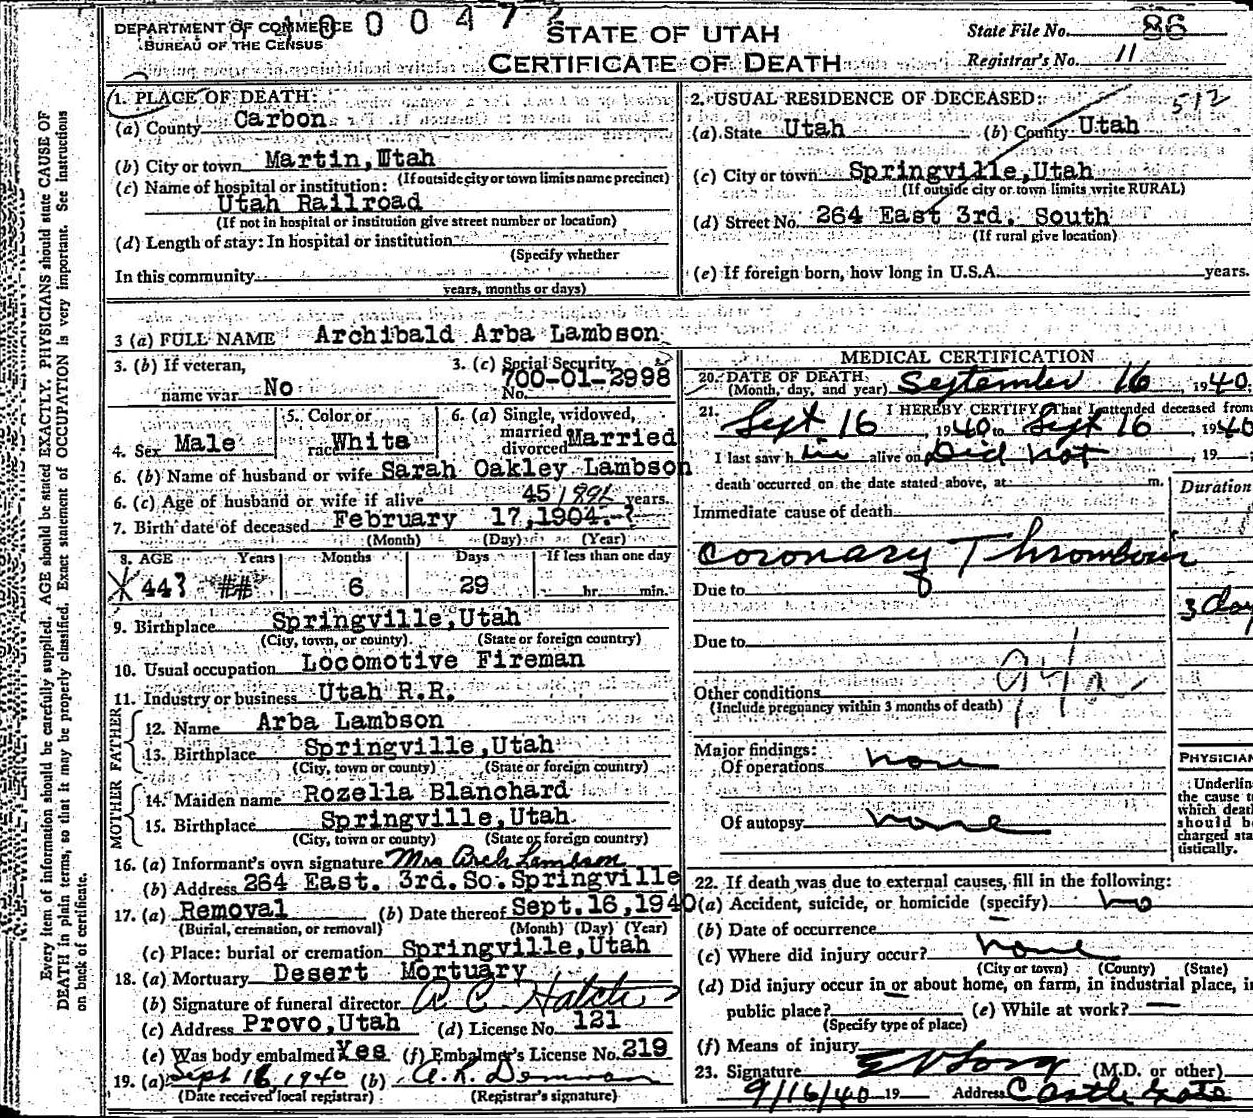 DEPARTMENT OF COMMERCE
BUREAU OF THE CENSUS
000472
STATE OF UTAH
CERTIFICATE OF DEATH
State File No. 86
Registrar's No. 11
1. PLACE OF DEATH:
(a) County Carbon
(b) City or town Martin, Utah
(If outside city or town limits name precinct)
(c) Name of hospital or institution:
Utah Railroad
(If not in hospital or institution give street number or location)
(d) Length of stay: In hospital or institution
(Specify whether
In this community
years, months or days)
2. USUAL RESIDENCE OF DECEASED: 512
(a) State Utah (b) County Utah
(c) City or town Springville, Utah
(If outside city or town limits write RURAL)
(d) Street No. 264 East 3rd. South
(If rural give location)
(e) If foreign born, how long in U.S.A. years.
3 (a) FULL NAME Archibald Arba Lambson
3. (b) If veteran,
name war No
3. (c) Social Security
No. 700-01-2998
4. Sex Male
5. Color or
race White
6. (a) Single, widowed,
married or
divorced Married
6. (b) Name of husband or wife Sarah Oakley Lambson
6. (c) Age of husband or wife if alive 45 years.
7. Birth date of deceased February 17, 1904.-?
(Month) (Day) (Year)
8. AGE Years Months Days If less than one day
44? ## 6 29 hr. min.
9. Birthplace Springville, Utah
(City, town, or county) (State or foreign country)
10. Usual occupation Locomotive Fireman
11. Industry or business Utah R.R.
FATHER
12. Name Arba Lambson
13. Birthplace Springville, Utah
(City, town or county) (State or foreign country)
MOTHER
14. Maiden name Rozella Blanchard
15. Birthplace Springville, Utah
(City, town or county) (State or foreign country)
16. (a) Informant's own signature Mrs Arch Lambson
(b) Address 264 East. 3rd. So. Springville
17. (a) Removal (b) Date thereof Sept. 16, 1940
(Burial, cremation, or removal) (Month) (Day) (Year)
(c) Place: burial or cremation Springville, Utah
18. (a) Mortuary Desert Mortuary
(b) Signature of funeral director A C Hatch
(c) Address Provo, Utah (d) License No. 121
(e) Was body embalmed Yes (f) Embalmer's License No. 219
19. (a) Sept 16, 1940 (b)
(Date received local registrar) (Registrar's signature)
MEDICAL CERTIFICATION
20. DATE OF DEATH
(Month, day, and year) September 16, 1940.
21. I HEREBY CERTIFY, That I attended deceased from
Sept 16, 1940 to Sept 16, 1940
I last saw him alive on Did not, 19
death occurred on the date stated above, at m.
Duration
Immediate cause of death
Coronary Thrombosis
Due to
3 day
Due to
94a
Other conditions
(Include pregnancy within 3 months of death)
Major findings:
Of operations none
Of autopsy none
PHYSICIAN
Underlin
the cause to
which deat
should be
charged sta
tistically.
22. If death was due to external causes, fill in the following:
(a) Accident, suicide, or homicide (specify) no
(b) Date of occurrence
(c) Where did injury occur? none
(City or town) (County) (State)
(d) Did injury occur in or about home, on farm, in industrial place, i
public place? (e) While at work? —
(Specify type of place)
(f) Means of injury
23. Signature (M.D. or other)
9/16/40 19 Address Castle Gate
Every item of information should be carefully supplied. AGE should be stated EXACTLY. PHYSICIANS should state CAUSE OF
DEATH in plain terms, so that it may be properly classified. Exact statement of OCCUPATION is very important. See instructions
on back of certificate.